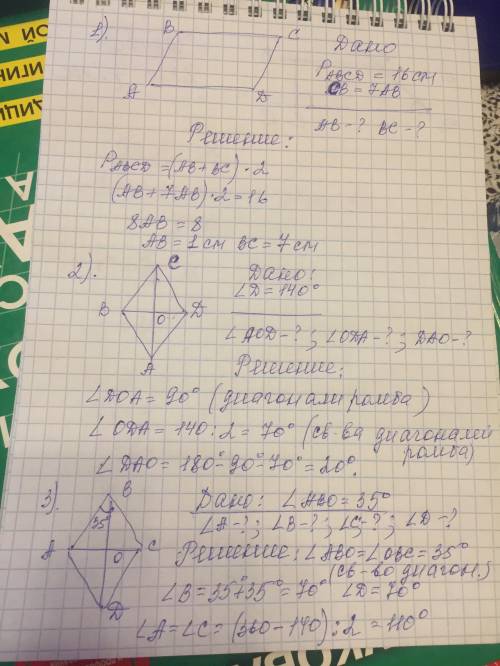 1).
B C
A D
Дано
P ABCD = 16 см
CB = 7AB
AB - ? BC - ?
Решение:
P ABCD = (AB + BC) · 2
(AB + 7AB) · 2 = 16
8AB = 8
AB = 1 см BC = 7 см
2).
C
B O D
A
Дано:
∠D = 140°
∠AOD - ? ; ∠ODA - ? ; DAO - ?
Решение:
∠DOA = 90° (диагонали ромба)
∠ODA = 140 : 2 = 70° (св-ва диагоналей
ромба)
∠DAO = 180° - 90° - 70° = 20°.
3).
B
35°
A O C
D
Дано: ∠ABO = 35°
∠A - ? ; ∠B - ? ; ∠C - ? ; ∠D - ?
Решение: ∠ABO = ∠OBC = 35°
(св-во диагон.)
∠B = 35° + 35° = 70° ∠D = 70°
∠A = ∠C = (360 - 140) : 2 = 110°